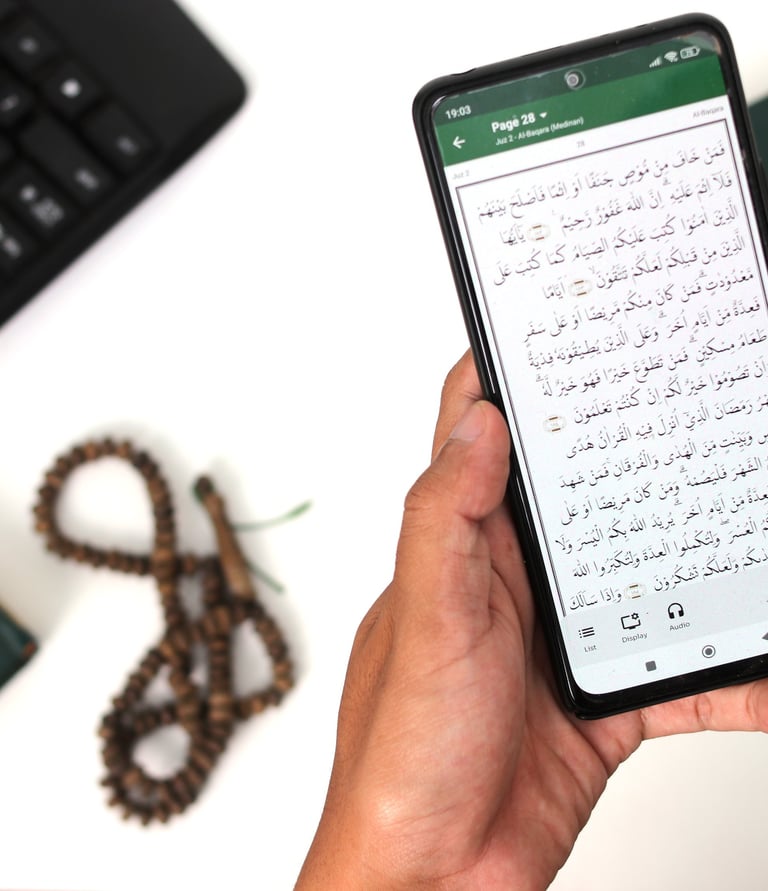 19:03
Page 28
Juz 2 - Al-Baqara (Medinan)
Juz 2 28 Al-Baqara
فَمَنْ خَافَ مِنْ مُّوْصٍ جَنَفًا اَوْ اِثْمًا فَاَصْلَحَ بَيْنَهُمْ
فَلَآ اِثْمَ عَلَيْهِ ۗ اِنَّ اللّٰهَ غَفُوْرٌ رَّحِيْمٌ يٰٓاَيُّهَا
الَّذِيْنَ اٰمَنُوْا كُتِبَ عَلَيْكُمُ الصِّيَامُ كَمَا كُتِبَ عَلَى
الَّذِيْنَ مِنْ قَبْلِكُمْ لَعَلَّكُمْ تَتَّقُوْنَۙ اَيَّامًا
مَّعْدُوْدٰتٍۗ فَمَنْ كَانَ مِنْكُمْ مَّرِيْضًا اَوْ عَلٰى سَفَرٍ
فَعِدَّةٌ مِّنْ اَيَّامٍ اُخَرَ ۗ وَعَلَى الَّذِيْنَ يُطِيْقُوْنَهٗ فِدْيَةٌ
طَعَامُ مِسْكِيْنٍۗ فَمَنْ تَطَوَّعَ خَيْرًا فَهُوَ خَيْرٌ لَّهٗ ۗ
اَنْ تَصُوْمُوْا خَيْرٌ لَّكُمْ اِنْ كُنْتُمْ تَعْلَمُوْنَ
رَمَضَانَ الَّذِيْٓ اُنْزِلَ فِيْهِ الْقُرْاٰنُ هُدًى
وَبَيِّنٰتٍ مِّنَ الْهُدٰى وَالْفُرْقَانِۚ فَمَنْ شَهِدَ
الشَّهْرَ فَلْيَصُمْهُ ۗ وَمَنْ كَانَ مَرِيْضًا اَوْ عَلٰى
عِدَّةٌ مِّنْ اَيَّامٍ اُخَرَ ۗ يُرِيْدُ اللّٰهُ بِكُمُ الْيُسْرَ وَلَا
الْعُسْرَ ۖ وَلِتُكْمِلُوا الْعِدَّةَ وَلِتُكَبِّرُوا اللّٰهَ
وَلَعَلَّكُمْ تَشْكُرُوْنَ وَاِذَا سَاَلَكَ
List Display Audio